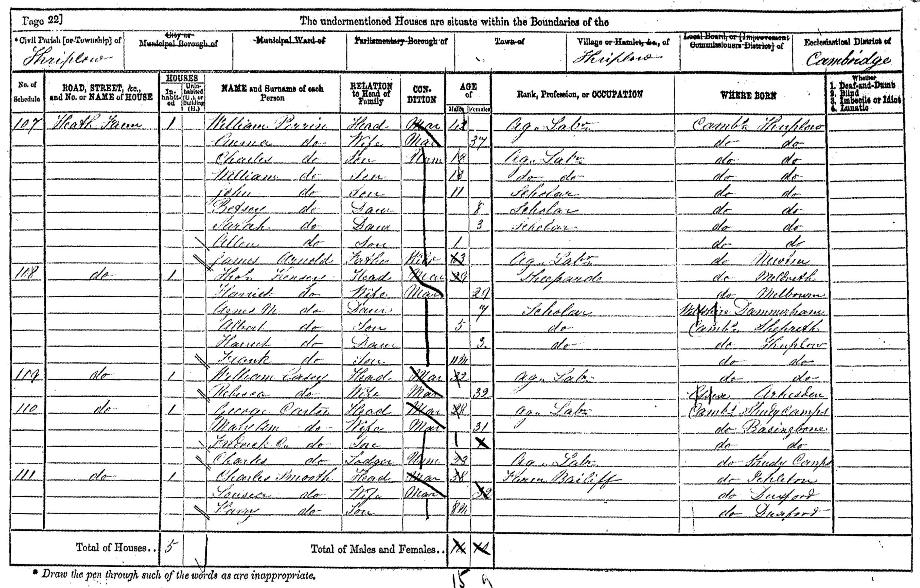 Page 22] The undermentioned Houses are situate within the Boundaries of the
*Civil Parish [or Township] of City or Municipal Borough of Municipal Ward of Parliamentary Borough of Town of Village or Hamlet, &c., of Local Board, or [Improvement Commissioners District] of Ecclesiastical District of
Thriplow Thriplow Cambridge
No. of Schedule ROAD, STREET, &c., and No. or NAME of HOUSE HOUSES Inhabited Uninhabited (U.), or Building (B.) NAME and Surname of each Person RELATION to Head of Family CONDITION AGE of Males Females Rank, Profession, or OCCUPATION WHERE BORN Whether 1. Deaf-and-Dumb 2. Blind 3. Imbecile or Idiot 4. Lunatic
107 Heath Farm 1 William Perrin Head Mar Ag. Labr Camb. Thriplow
Emma do Wife Mar 37 do do
Charles do Son Unm Ag. Labr do do
William do Son do do do do
John do Son 11 Scholar do do
Betsey do Daur 8 Scholar do do
Sarah do Daur 3 Scholar do do
Allen do Son 1 do do
James Arnold Wid 63 Ag. Labr do Newton
108 do 1 Head Mar 29 Shepherd do Meldreth
Harriet do Wife Mar 29 do Melbourn
do Daur 7 Scholar
Albert do Son 5 do Camb. Shepreth
Harriet do Daur 2 do do Thriplow
Frank do Son do do
109 do 1 William Casey Head Mar 32 Ag. Labr do do
Rebecca do Wife Mar 32 Essex Arkesden
110 do 1 George Carter Head Mar 28 Ag. Labr Camb. Shudy Camps
Mary Ann do Wife Mar 31 do Basingbone
Frederick do Son 1 do do
Charles do Lodger Unm 23 Ag. Labr do Shudy Camps
111 do 1 Charles Smooth Head Mar 38 Farm Bailiff do Ickleton
Louisa do Wife Mar 32 do Duxford
Harry do Son 8m do Duxford
Total of Houses.. 5 Total of Males and Females..
15 9
* Draw the pen through such of the words as are inappropriate.